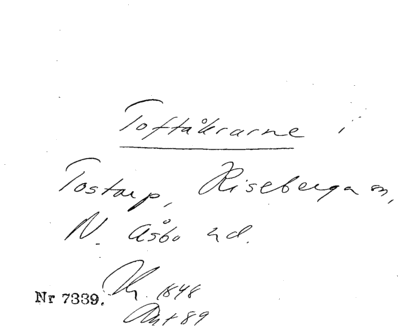 Toftåkrarne i
Tostarp, Riseberga sn,
N. Åsbo hd.
Nr 7339. Kr. 1848
Ant 89